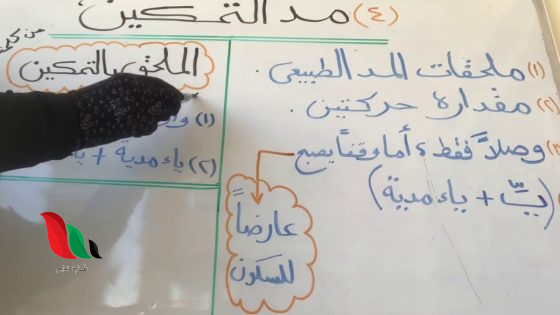 (٤) مد التمكين
(١) ملحقات المد الطبيعي.
(٢) مقداره حركتين.
وصلاً فقط، أما وقفاً يصبح
عارضاً
للسكون
(يِّ + ياء مدية)
الملحق بالتمكين
(١)
(٢) ياء مدية +